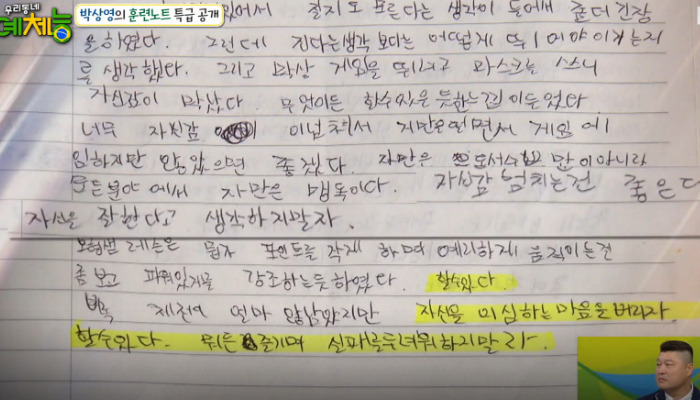 우리동네
예체능
박상영의 훈련노트 특급 공개
있어서 질지도 모른다는 생각이 들어서 좀더 긴장
을하였다. 그런데 지다는생각 보다는 어떻게 뛰어야 이기는지
를 생각했다. 그리고 막상 게임을 뛰려고 마스크를 쓰니
자신감이 막났다. 무엇이든 할수있을 듯하는 느낌이 들었다
너무 자신감 이넘쳐서 자만은하면서 게임에
임하지만 않았으면 좋겠다. 자만은 말이아니라
모든분야에서 자만은 맹독이다. 자신감 넘치는건 좋은데
자신을 잘한다고 생각하지말자.
레슨은 포인트를 작게 하며 예리하게 움직이는건
좀보고 파워있게를 강조하는듯하였다. 할수있다.
비록 체전이 얼마 안남았지만 자신을 의심하는 마음을 버리자
할수있다. 뭐든 즐기며 실패를두려워하지말라.